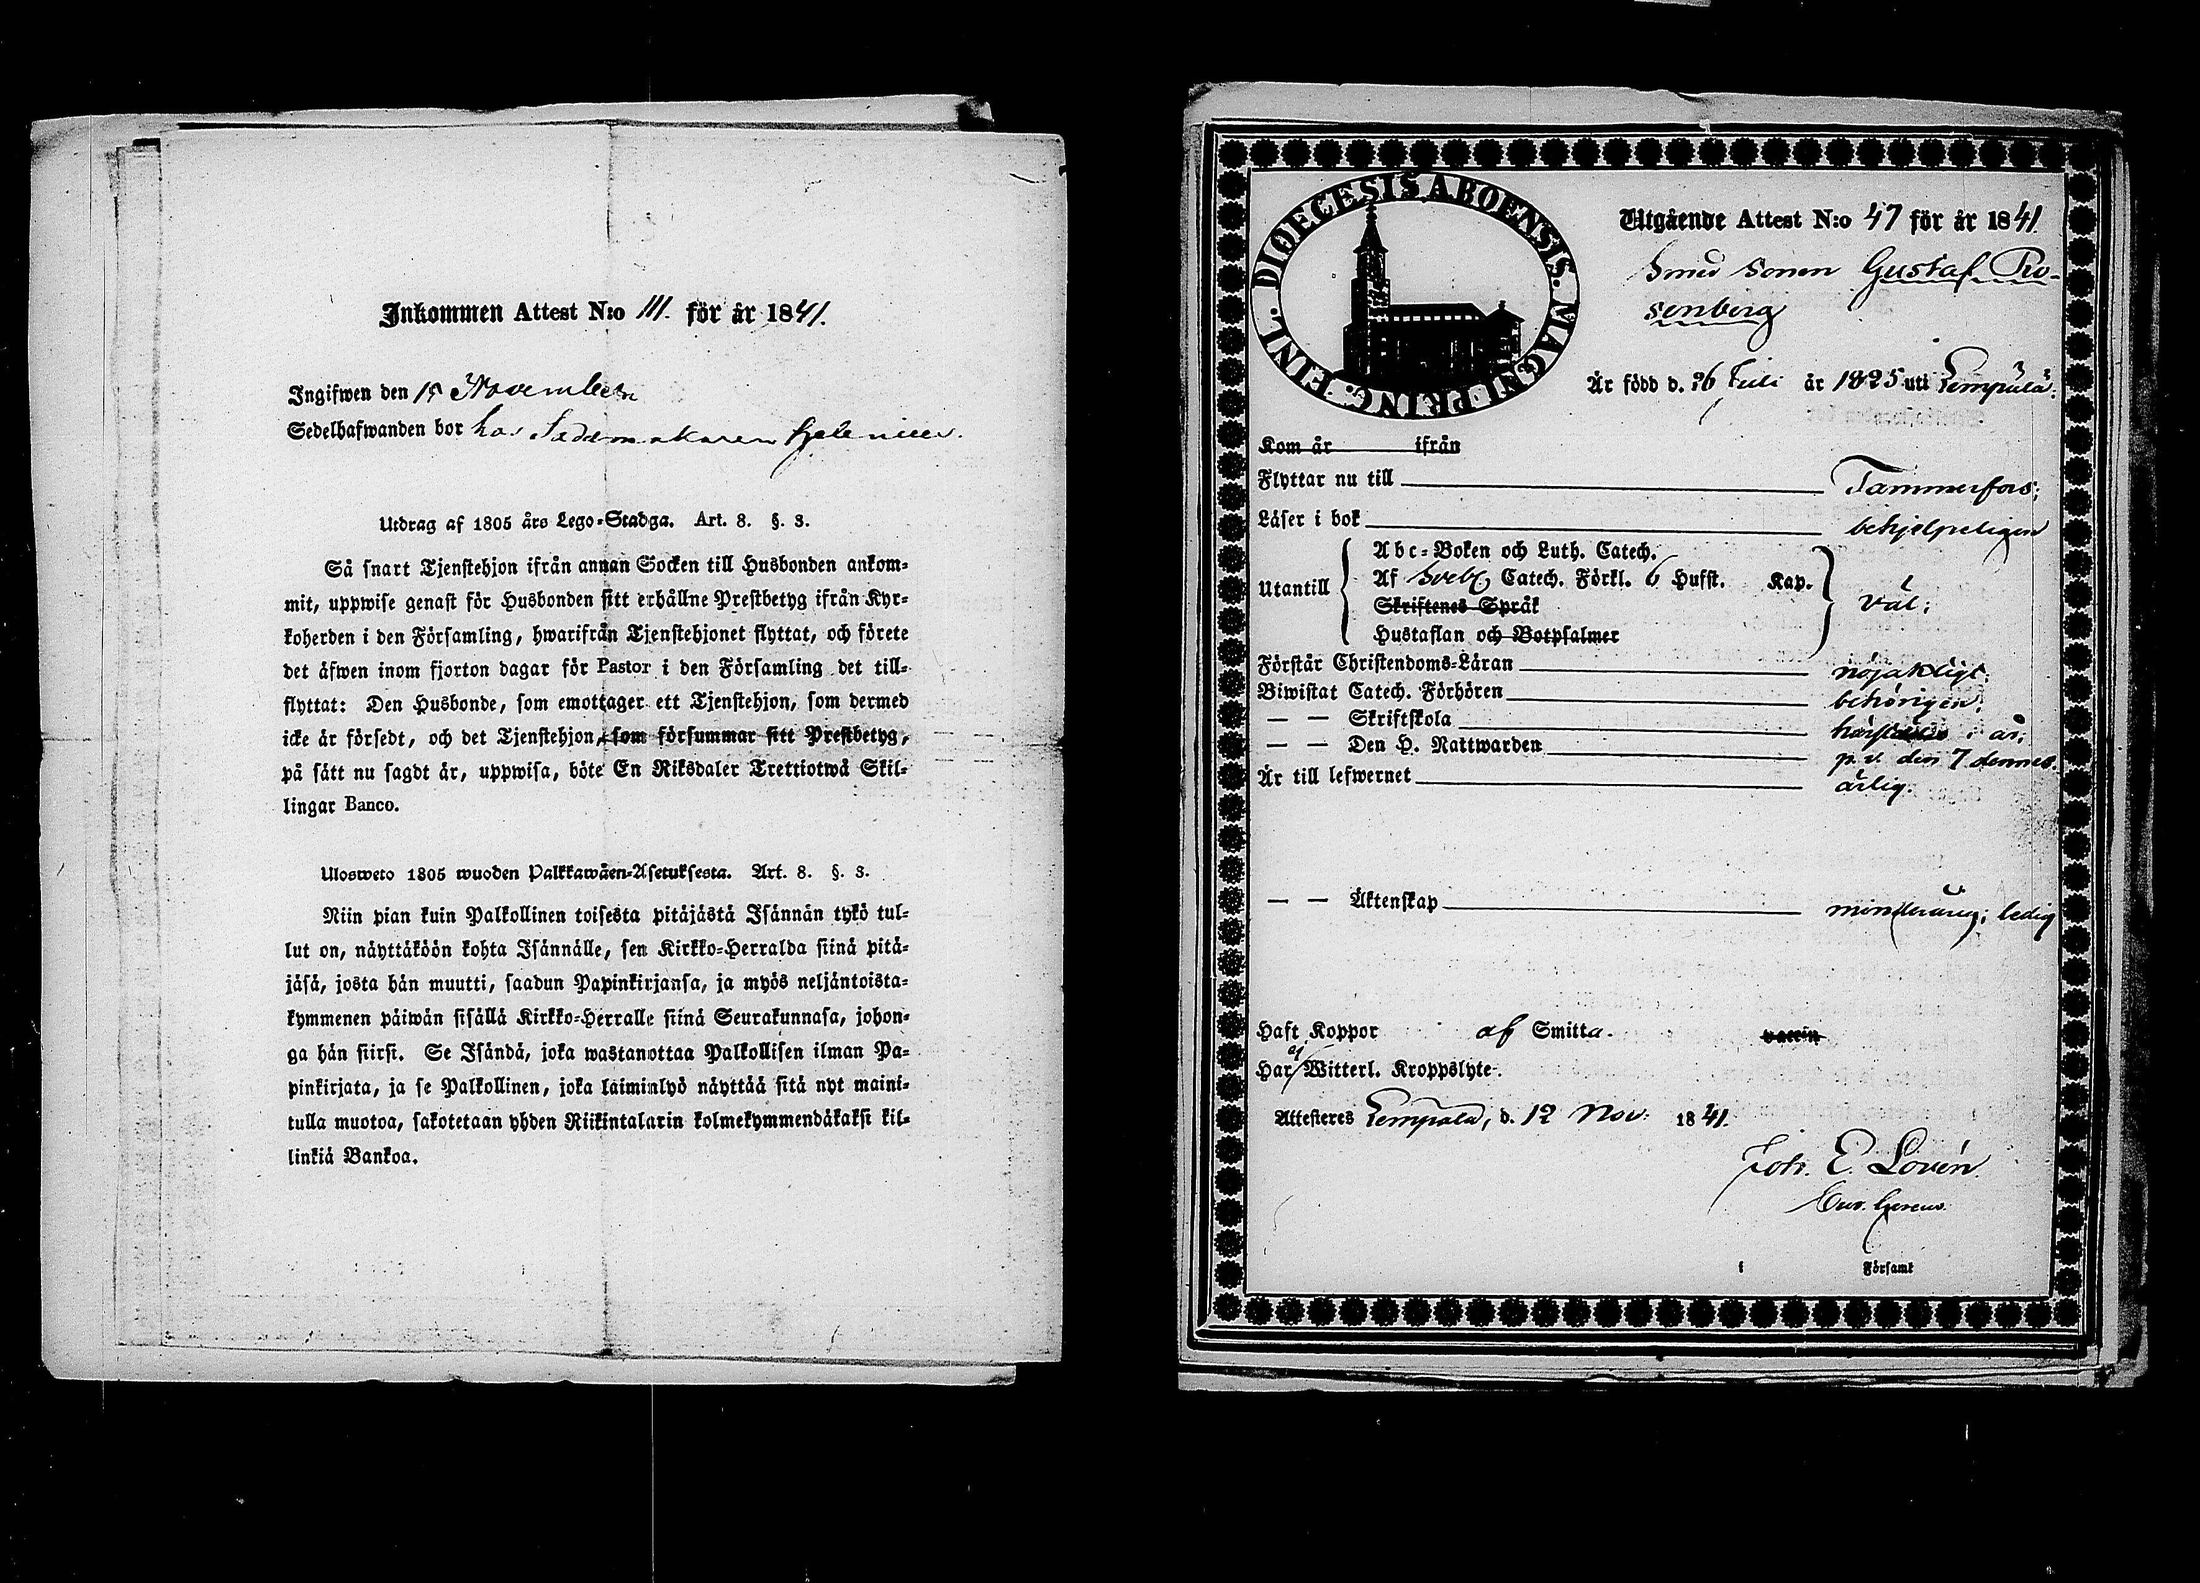 Inkommen Attest N:o 111. för år 1841.
Ingifwen den 15 November
Sedelhafwanden bor hos Sadelmakaren
Utdrag af 1805 års Lego-Stadga. Art. 8. §. 3.
Så snart Tjenstehjon ifrån annan Socken till Husbonden ankom-
mit, uppwise genast för Husbonden sitt erhållne Prestbetyg ifrån Kyr-
koherden i den Församling, hwarifrån Tjenstehjonet flyttat, och förete
det äfwen inom fjorton dagar för Pastor i den Församling det till-
flyttat: Den Husbonde, som emottager ett Tjenstehjon, som dermed
icke är försedt, och det Tjenstehjon, som försummar sitt Prestbetyg,
på sätt nu sagdt är, uppwisa, böte En Riksdaler Trettiotwå Skil-
lingar Banco.
Ulosweto 1805 wuoden Palkkawäen-Asetuksesta. Art. 8. §. 3.
Niin pian kuin Palkollinen toisesta pitäjästä Isännän tykö tul-
lut on, näyttäköön kohta Isännälle, sen Kirkko-Herralda siinä pitä-
jäsä, josta hän muutti, saadun Papinkirjansa, ja myös neljäntoista-
kymmenen päiwän sisällä Kirkko-Herralle siinä Seurakunnasa, johon-
ga hän siirsi. Se Isändä, joka wastanottaa Palkollisen ilman Pa-
pinkirjata, ja se Palkollinen, joka laiminlyö näyttää sitä nyt maini-
tulla muotoa, sakotetaan yhden Riikintalarin kolmekymmendäkaksi kil-
linkiä Bankoa.
DIOECESIS ABOENSIS. MAGNI PRINC. FINL.
Utgående Attest N:o 47 för år 1841
Smed sonen Gustaf Ro-
senberg
Är född d. 26 Juli år 1825 uti Lempälä.
Kom år ifrån
Flyttar nu till Tammerfors;
Läser i bok behjelpeligen
Abc-Boken och Luth. Catech.
Utantill Af Sveb. Catech. Förkl. 6 Hufst. Kap. väl;
Skriftenes Språk
Hustaflan och Botpsalmer
Förstår Christendoms-Läran nöjaktigt;
Biwistat Catech. Förhören behörigen;
— — Skriftskola i år;
— — Den H. Nattwarden p. v. den 7 dennes.
Är till lefwernet ärlig.
— — Äktenskap minderårig; ledig
Haft Koppor af Smitta. vaccin
Har ej Witterl. Kroppslyte.
Attesteres Lempälä, d. 12 Nov. 1841.
Joh. E. Lovén.
i Församl